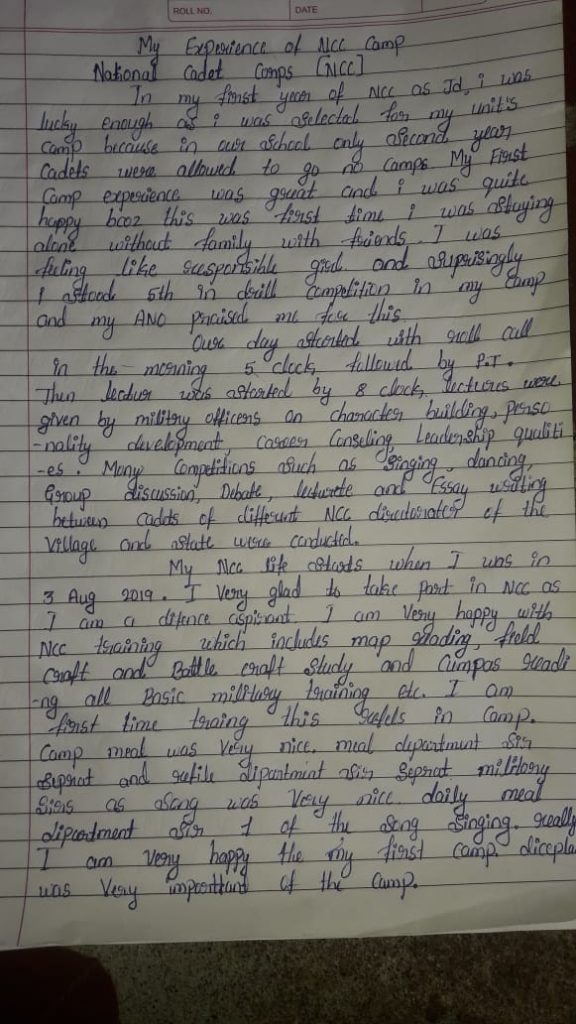 ROLL NO.
DATE
My Experience of NCC Camp
National Cadet Comps [NCC]
In my first year of NCC as Jd, i was
lucky enough as i was selectal for my unit's
camp because in our School only Second year
Cadets were allowed to go no camps My First
Camp experience was great and i was quite
happy bcoz this was first time i was staying
alone without family with friends. I was
feeling like responsible girl. and suprisingly
I stood 5th in drill Competition in my Camp
and my ANO praised me for this
Our day started with roll call
in the morning 5 clock, followed by P.T.
Then lectur was started by 8 clock, lectures were
given by military officers on character building, perso
-nality development, career Conseling, Leadership qualiti
-es. Many Competitions such as Singing, dancing,
Group discussion, Debate, lecturete and Essay writing
between cadets of different NCC directorates of the
Village and state were conducted.
My Ncc life starts when I was in
3 Aug 2019. I Very glad to take part in NCC as
I am a difence aspirant. I am Very happy with
Ncc training which includes map reading, field
craft and Battle craft study and Cumpas readi
-ng all Basic military training etc. I am
first time traing this in Camp.
Camp meal was Very nice. meal department Sir
Seprat and dipartmint Sir Seprat military
Sirs as Song was Very nice daily meal
dipartment Sir 1 of the Song Singing. really
I am very happy the my first camp. dicepla
was Very importtant of the Camp.